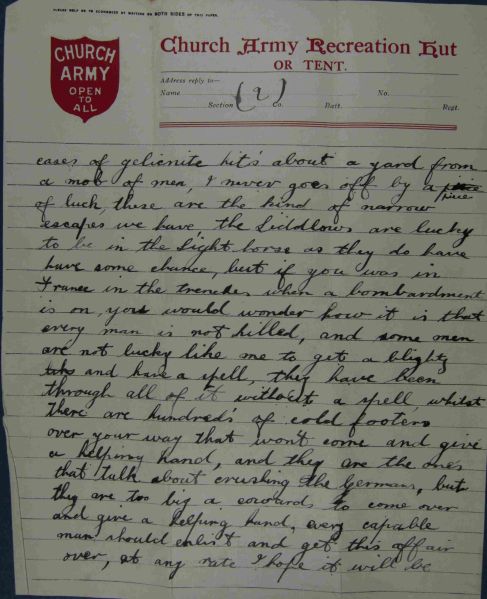 PLEASE HELP US TO ECONOMISE BY WRITING ON BOTH SIDES OF THIS PAPER.
CHURCH
ARMY
OPEN
TO
ALL
Church Army Recreation Hut
OR TENT.
Address reply to—
Name No.
Section (2) Co. Batt. Regt.
cases of gelicnite hit's about a yard from
a mob of men, & never goes off by a piece
of luck, these are the kind of narrow
escapes we have, the Siddlows are lucky
to be in the Light horse as they do have
have some chance, but if you was in
France in the trenches when a bombardment
is on, you would wonder how it is that
every man is not killed, and some men
are not lucky like me to get a blighty
and have a spell, they have been
through all of it without a spell, whilst
there are hundred's of cold footers
over your way that won't come and give
a helping hand, and they are the ones
that talk about crushing the Germans, but
they are too big a cowards to come over
and give a helping hand, every capable
man should enlist and get this affair
over, at any rate I hope it will be